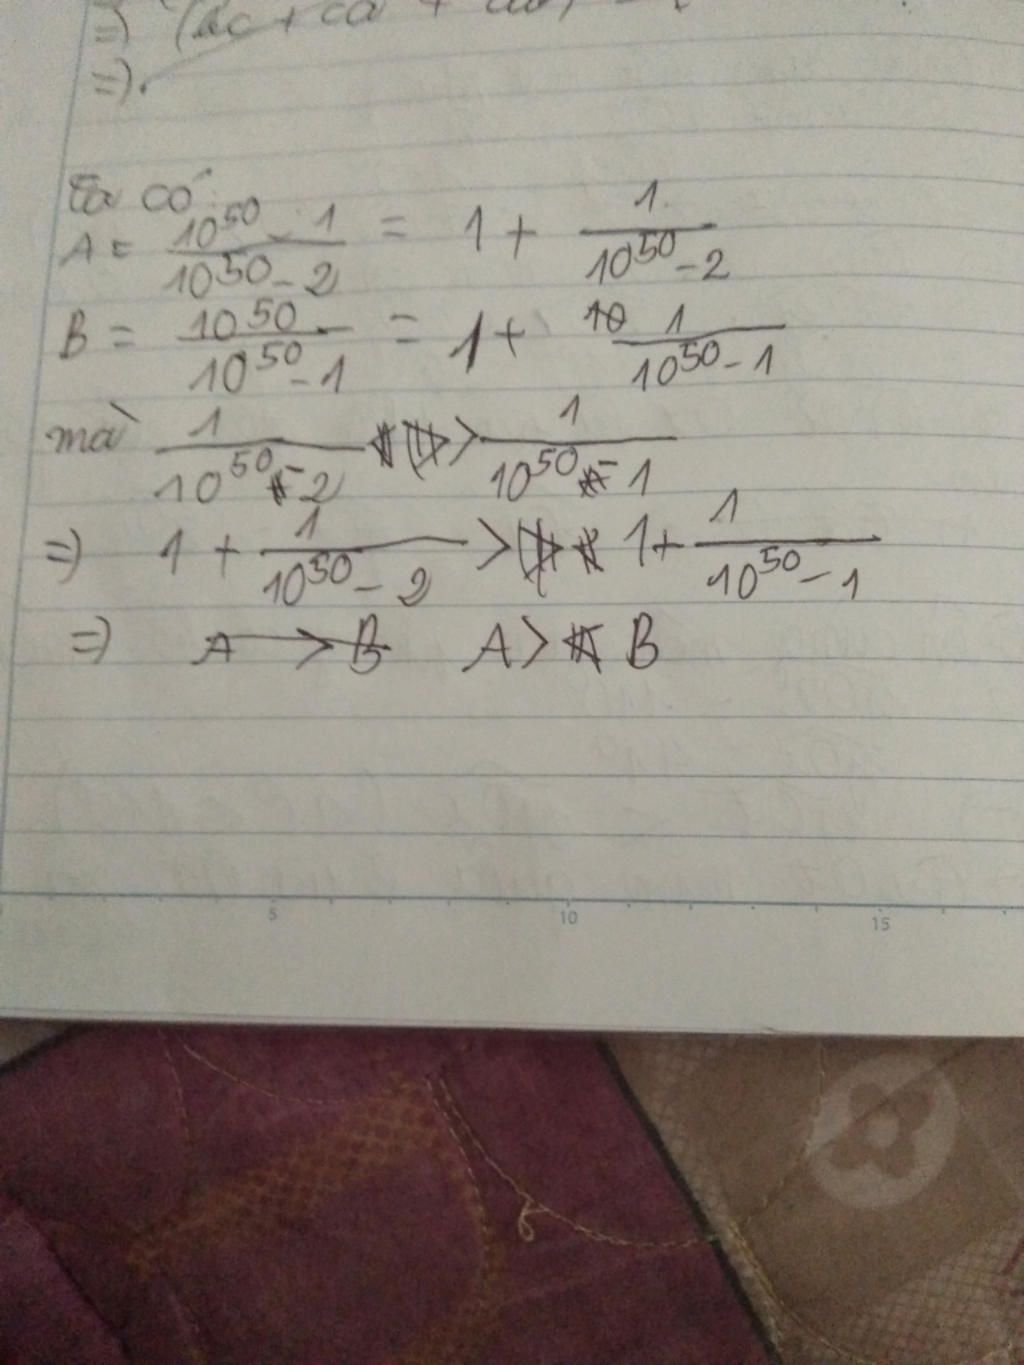 => (bc + ca + ab)
=>.
Ta có
A = \frac{10^{50} - 1}{10^{50} - 2} = 1 + \frac{1}{10^{50} - 2}
B = \frac{10^{50}}{10^{50} - 1} = 1 + \frac{1}{10^{50} - 1}
mà \frac{1}{10^{50} - 2} > \frac{1}{10^{50} - 1}
=> 1 + \frac{1}{10^{50} - 2} > 1 + \frac{1}{10^{50} - 1}
=> A > B A > B
5 10 15